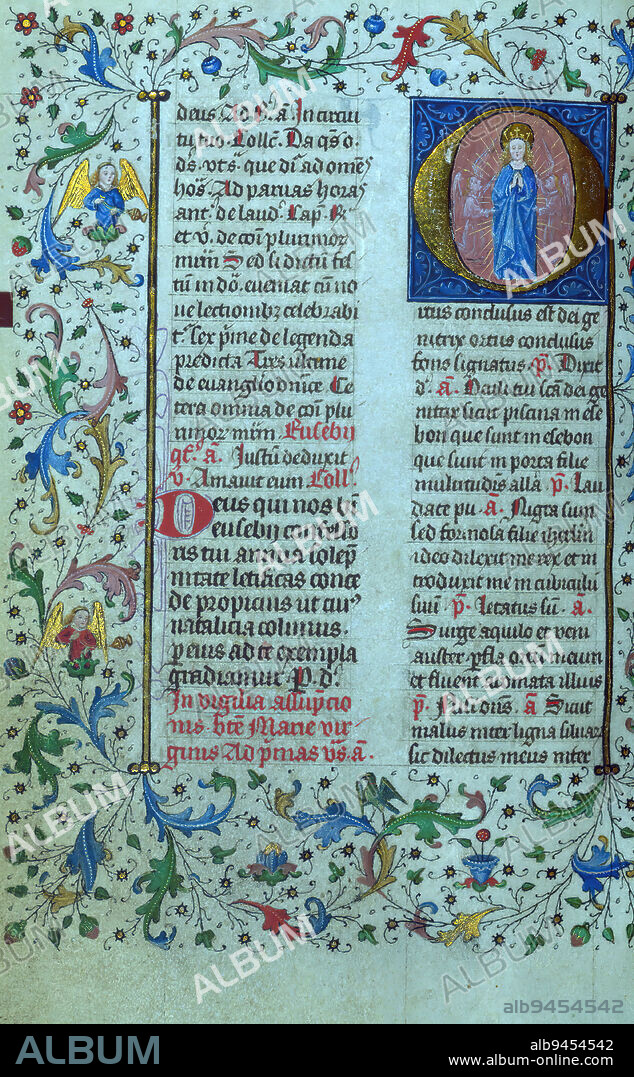 deus
In circui
tu tuo
Da qs o.
ds. vt sicut que di ad omes
hos. Ad paruas horas
ant. de laud. Cap. R.
et v. de coi plurimor
mrm Sed si dictum fes
tum in do. eueniat cu no
ue lectionibz celebrabi
t. Sex pme de legenda
predicta Tres ultime
de euanglio dnice. Ce
tera omnia de coi plu
rimor mrm Eusebij
a. Justu deduxit
v. Amauit eum Coll.
Deus qui nos bti
eusebij confesso
ris tui annua solep
nitate letificas conce
de propicius ut cui9
natalicia colimus.
p eius ad te exempla
gradiamur. P. d.
In vigilia assupcio
nis. bte Marie vir
ginis Ad pmas vs. a.
Ortus conclusus est dei ge
nitrix ortus conclusus
fons signatus. p. Dixit
d. a. Oculi tui sca dei ge
nitrix sicut piscina in ese
bon que sunt in esebon
que sunt in porta filie
multitudis alla p. Lau
date pu. a. Nigra sum
sed formosa filie ihrlm
ideo dilexit me rex et in
troduxit me in cubiculu
suu. p. Letatus su. a.
Surge aquilo et veni
auster pfla ortu meum
et fluent aromata illius
p. Nisi dns. a Sicut
malus inter ligna siluarz
sic dilectus meus inter
ALBUM
alb9454542
ALBUM
alb9454542
www.album-online.com